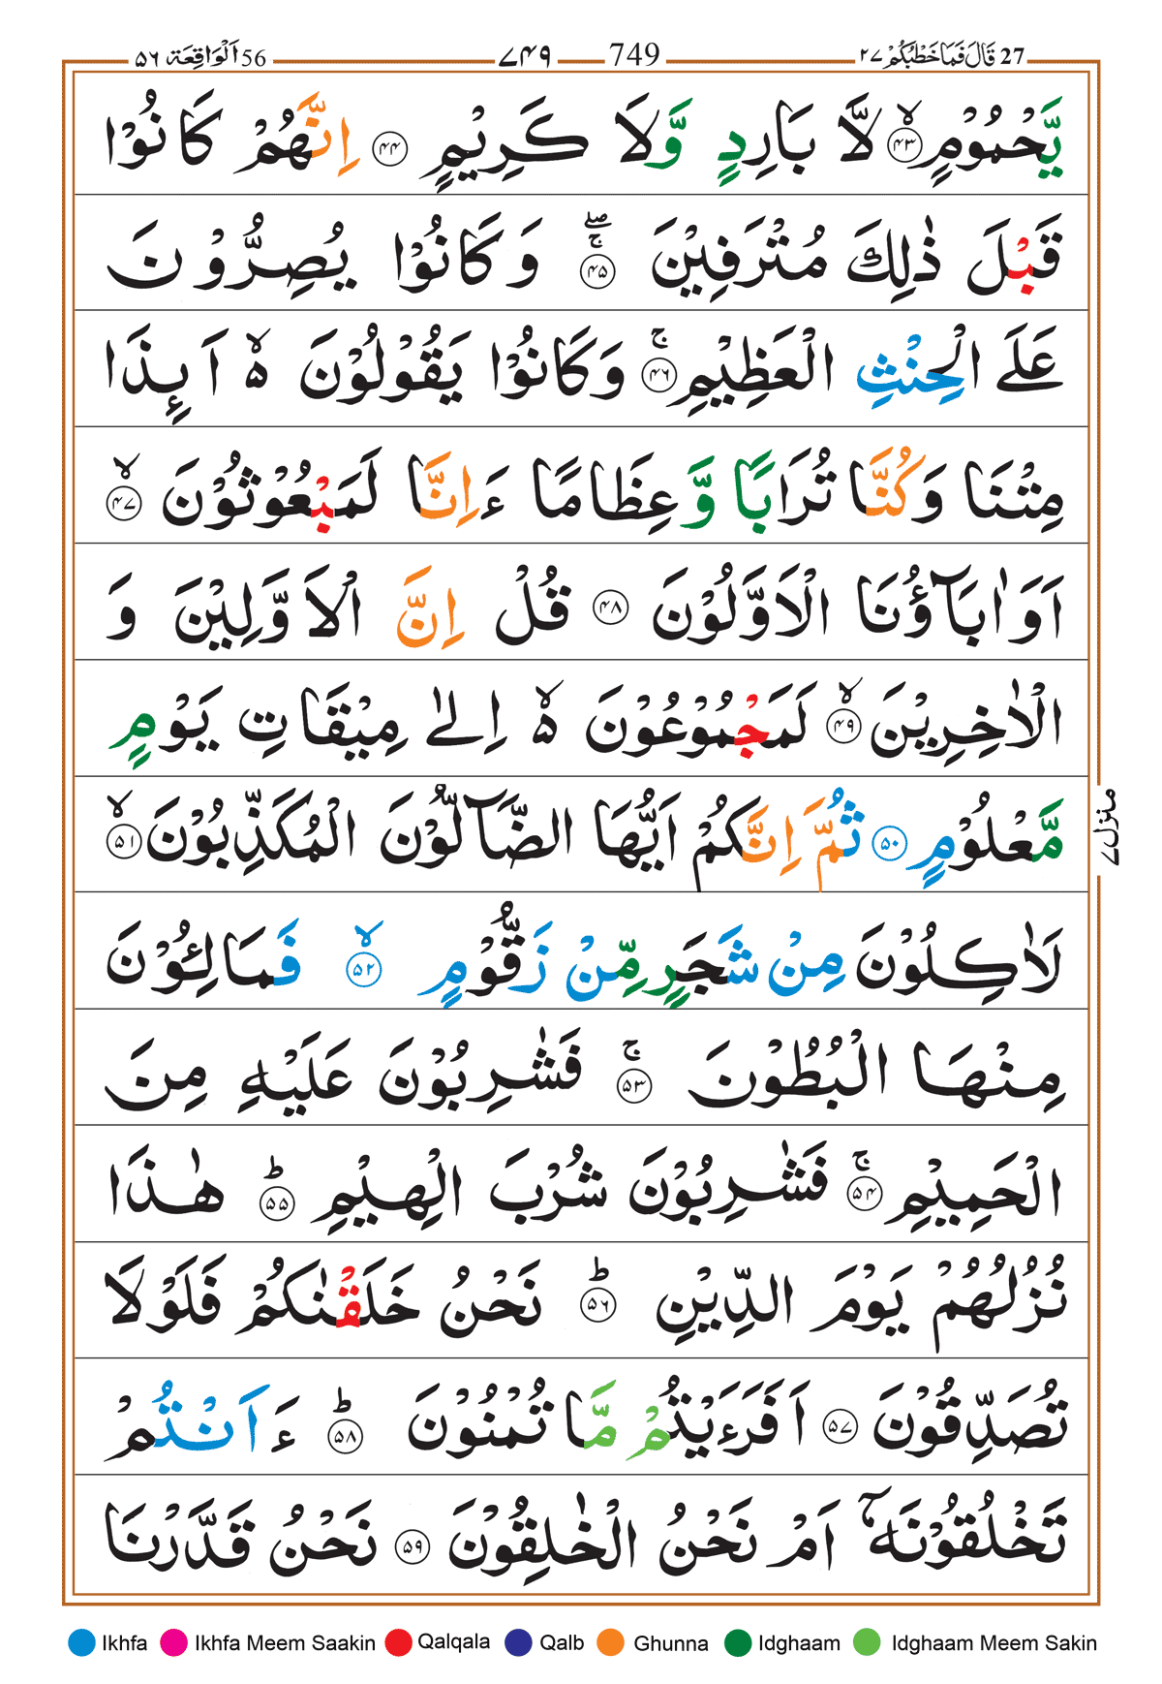 27 قَالَ فَمَا خَطْبُكُمْ ٢٧ 749 ٧٤٩ 56 اَلْوَاقِعَة ٥٦
يَّحْمُوْمٍ ۙ۴۳ لَّا بَارِدٍ وَّلَا كَرِيْمٍ ۴۴ اِنَّهُمْ كَانُوْا
قَبْلَ ذٰلِكَ مُتْرَفِيْنَ ۚۖ۴۵ وَكَانُوْا يُصِرُّوْنَ
عَلَى الْحِنْثِ الْعَظِيْمِ ۚ۴۶ وَكَانُوْا يَقُوْلُوْنَ ۙ۬ اَئِذَا
مِتْنَا وَكُنَّا تُرَابًا وَّعِظَامًا ءَاِنَّا لَمَبْعُوْثُوْنَ ۙ۴۷
اَوَاٰبَآؤُنَا الْاَوَّلُوْنَ ۴۸ قُلْ اِنَّ الْاَوَّلِيْنَ وَ
الْاٰخِرِيْنَ ۙ۴۹ لَمَجْمُوْعُوْنَ ۙ۬ اِلٰى مِيْقَاتِ يَوْمٍ
مَّعْلُوْمٍ ۵۰ ثُمَّ اِنَّكُمْ اَيُّهَا الضَّآلُّوْنَ الْمُكَذِّبُوْنَ ۙ۵۱
لَاٰكِلُوْنَ مِنْ شَجَرٍ مِّنْ زَقُّوْمٍ ۙ۵۲ فَمَالِئُوْنَ
مِنْهَا الْبُطُوْنَ ۚ۵۳ فَشٰرِبُوْنَ عَلَيْهِ مِنَ
الْحَمِيْمِ ۚ۵۴ فَشٰرِبُوْنَ شُرْبَ الْهِيْمِ ؕ۵۵ هٰذَا
نُزُلُهُمْ يَوْمَ الدِّيْنِ ؕ۵۶ نَحْنُ خَلَقْنٰكُمْ فَلَوْلَا
تُصَدِّقُوْنَ ۵۷ اَفَرَءَيْتُمْ مَّا تُمْنُوْنَ ؕ۵۸ ءَاَنْتُمْ
تَخْلُقُوْنَهٗۤ اَمْ نَحْنُ الْخٰلِقُوْنَ ۵۹ نَحْنُ قَدَّرْنَا
منزل ٧
Ikhfa Ikhfa Meem Saakin Qalqala Qalb Ghunna Idghaam Idghaam Meem Sakin